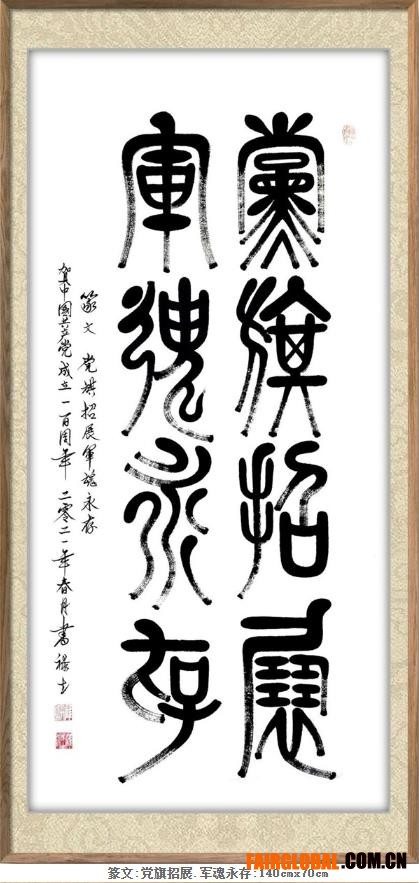 黨旗招展
軍魂永存
篆文 党旗招展軍魂永存
賀中國共产党成立一百周年 二零二一年春月書
FAIRGLOBAL.COM.CN
篆文:党旗招展.军魂永存:140cmx70cm